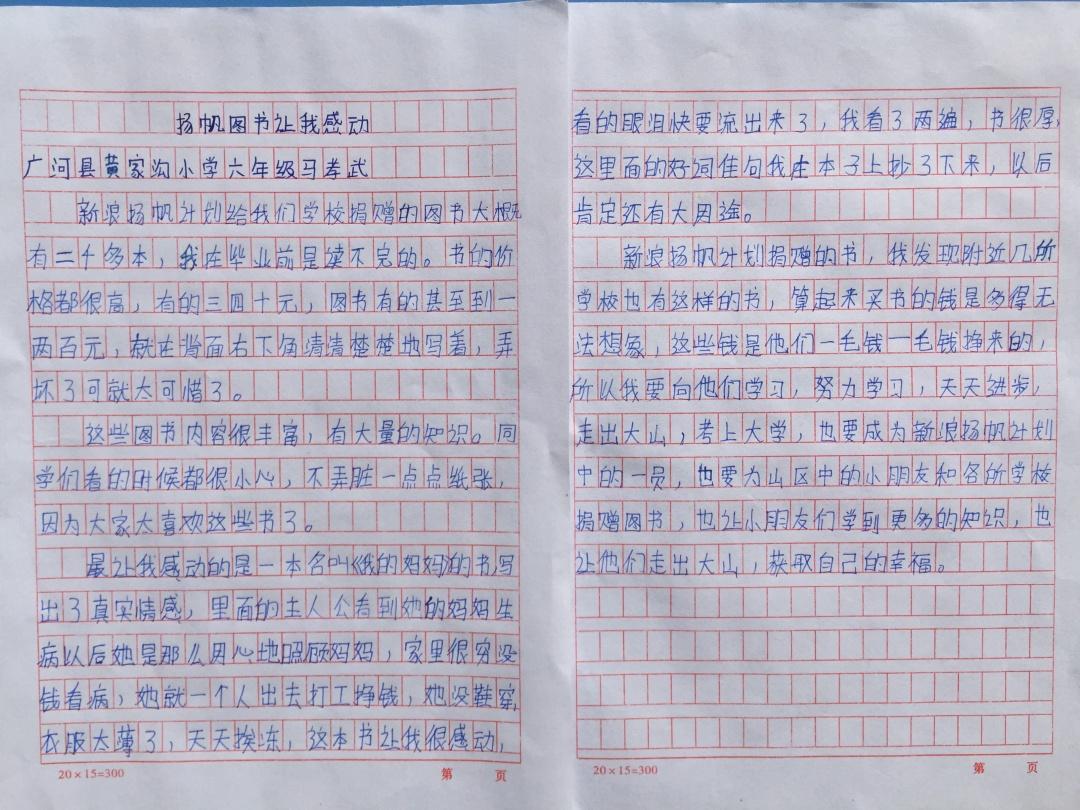 扬帆图书让我感动
广河县黄家沟小学六年级马孝武
新浪扬帆计划给我们学校捐赠的图书大概
有二千多本，我在毕业前是读不完的。书的价
格都很高，有的三四十元，图书有的甚至到一
两百元，就在背面右下角清清楚楚地写着，弄
坏了可就太可惜了。
这些图书内容很丰富，有大量的知识。同
学们看的时候都很小心，不弄脏一点点纸张，
因为大家太喜欢这些书了。
最让我感动的是一本名叫《我的妈妈》的书，写
出了真实情感，里面的主人公看到她的妈妈生
病以后她是那么用心地照顾妈妈，家里很穷没
钱看病，她就一个人出去打工挣钱，她没鞋穿，
衣服太薄了，天天挨冻，这本书让我很感动，
20×15=300
第 页
看的眼泪快要流出来了，我看了两遍，书很厚，
这里面的好词佳句我在本子上抄了下来，以后
肯定还有大用途。
新浪扬帆计划捐赠的书，我发现附近几所
学校也有这样的书，算起来买书的钱是多得无
法想象，这些钱是他们一毛钱一毛钱挣来的，
所以我要向他们学习，努力学习，天天进步，
走出大山，考上大学，也要成为新浪扬帆计划
中的一员，也要为山区中的小朋友和各所学校
捐赠图书，也让小朋友们学到更多的知识，也
让他们走出大山，获取自己的幸福。
20×15=300
第 页